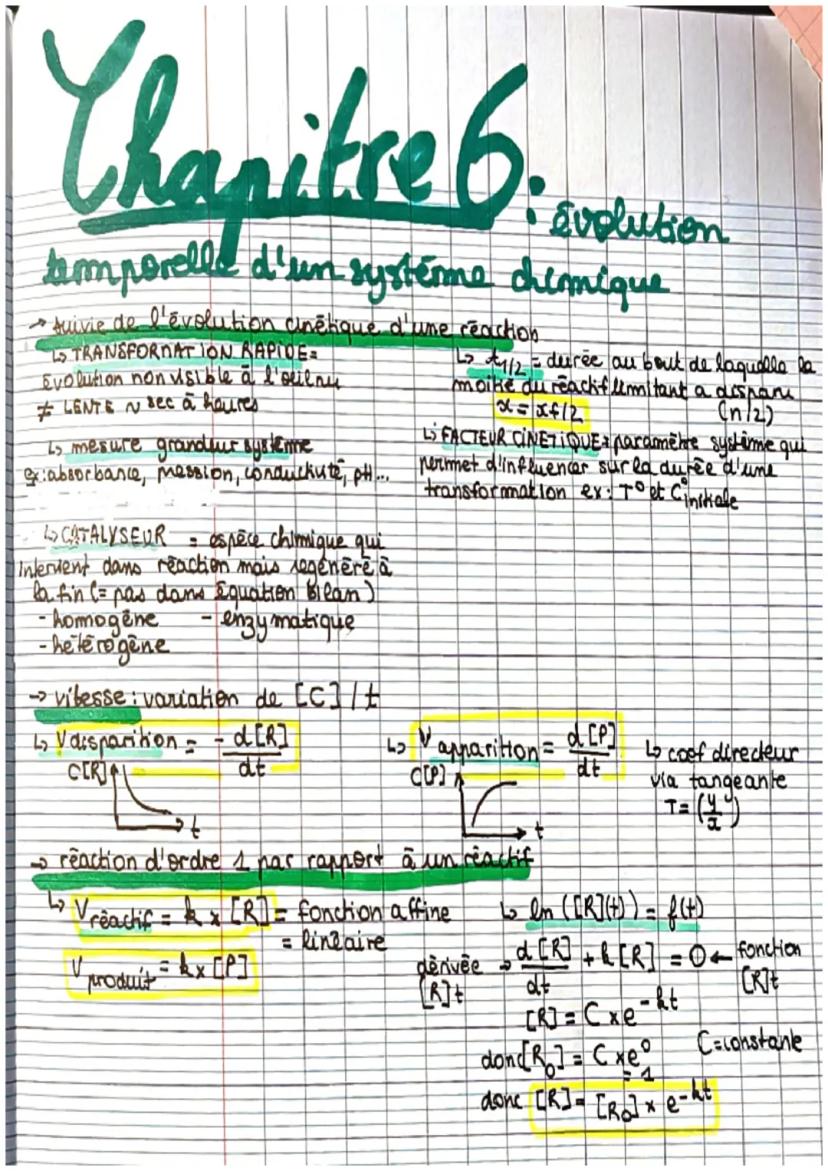 Chapitre 6 : évolution
temporelle d'un système chimique
→ suivie de l'évolution cinétique d'une réaction
↳ TRANSFORMATION RAPIDE =
évolution non visible à l'œil nu
≠ LENTE ~ sec à heures
↳ mesure grandeur système
ex : absorbance, pression, conductivité, pH...
↳ t1/2 = durée au bout de laquelle la
moitié du réactif limitant a disparu
x = xf/2 (n/2)
↳ FACTEUR CINETIQUE = paramètre système qui
permet d'influencer sur la durée d'une
transformation ex : T° et C° initiale
↳ CATALYSEUR = espèce chimique qui
intervient dans réaction mais régénéré à
la fin (= pas dans équation bilan)
- homogène - enzymatique
- hétérogène
→ vitesse : variation de [C] / t
↳ Vdisparition = - d[R]/dt
C[R]
t
↳ Vapparition = d[P]/dt
C[P]
t
↳ coef directeur
via tangeante
T = (y/x)
→ réaction d'ordre 1 par rapport à un réactif
↳ Vréactif = k x [R] = fonction affine
= linéaire
Vproduit = k x [P]
↳ ln ([R](t)) = f(t)
dérivée [R]t → d[R]/dt + k[R] = 0 ← fonction [R]t
[R] = C x e^-kt
donc [R0] = C x e^0 C = constante
= 1
donc [R] = [R0] x e^-kt